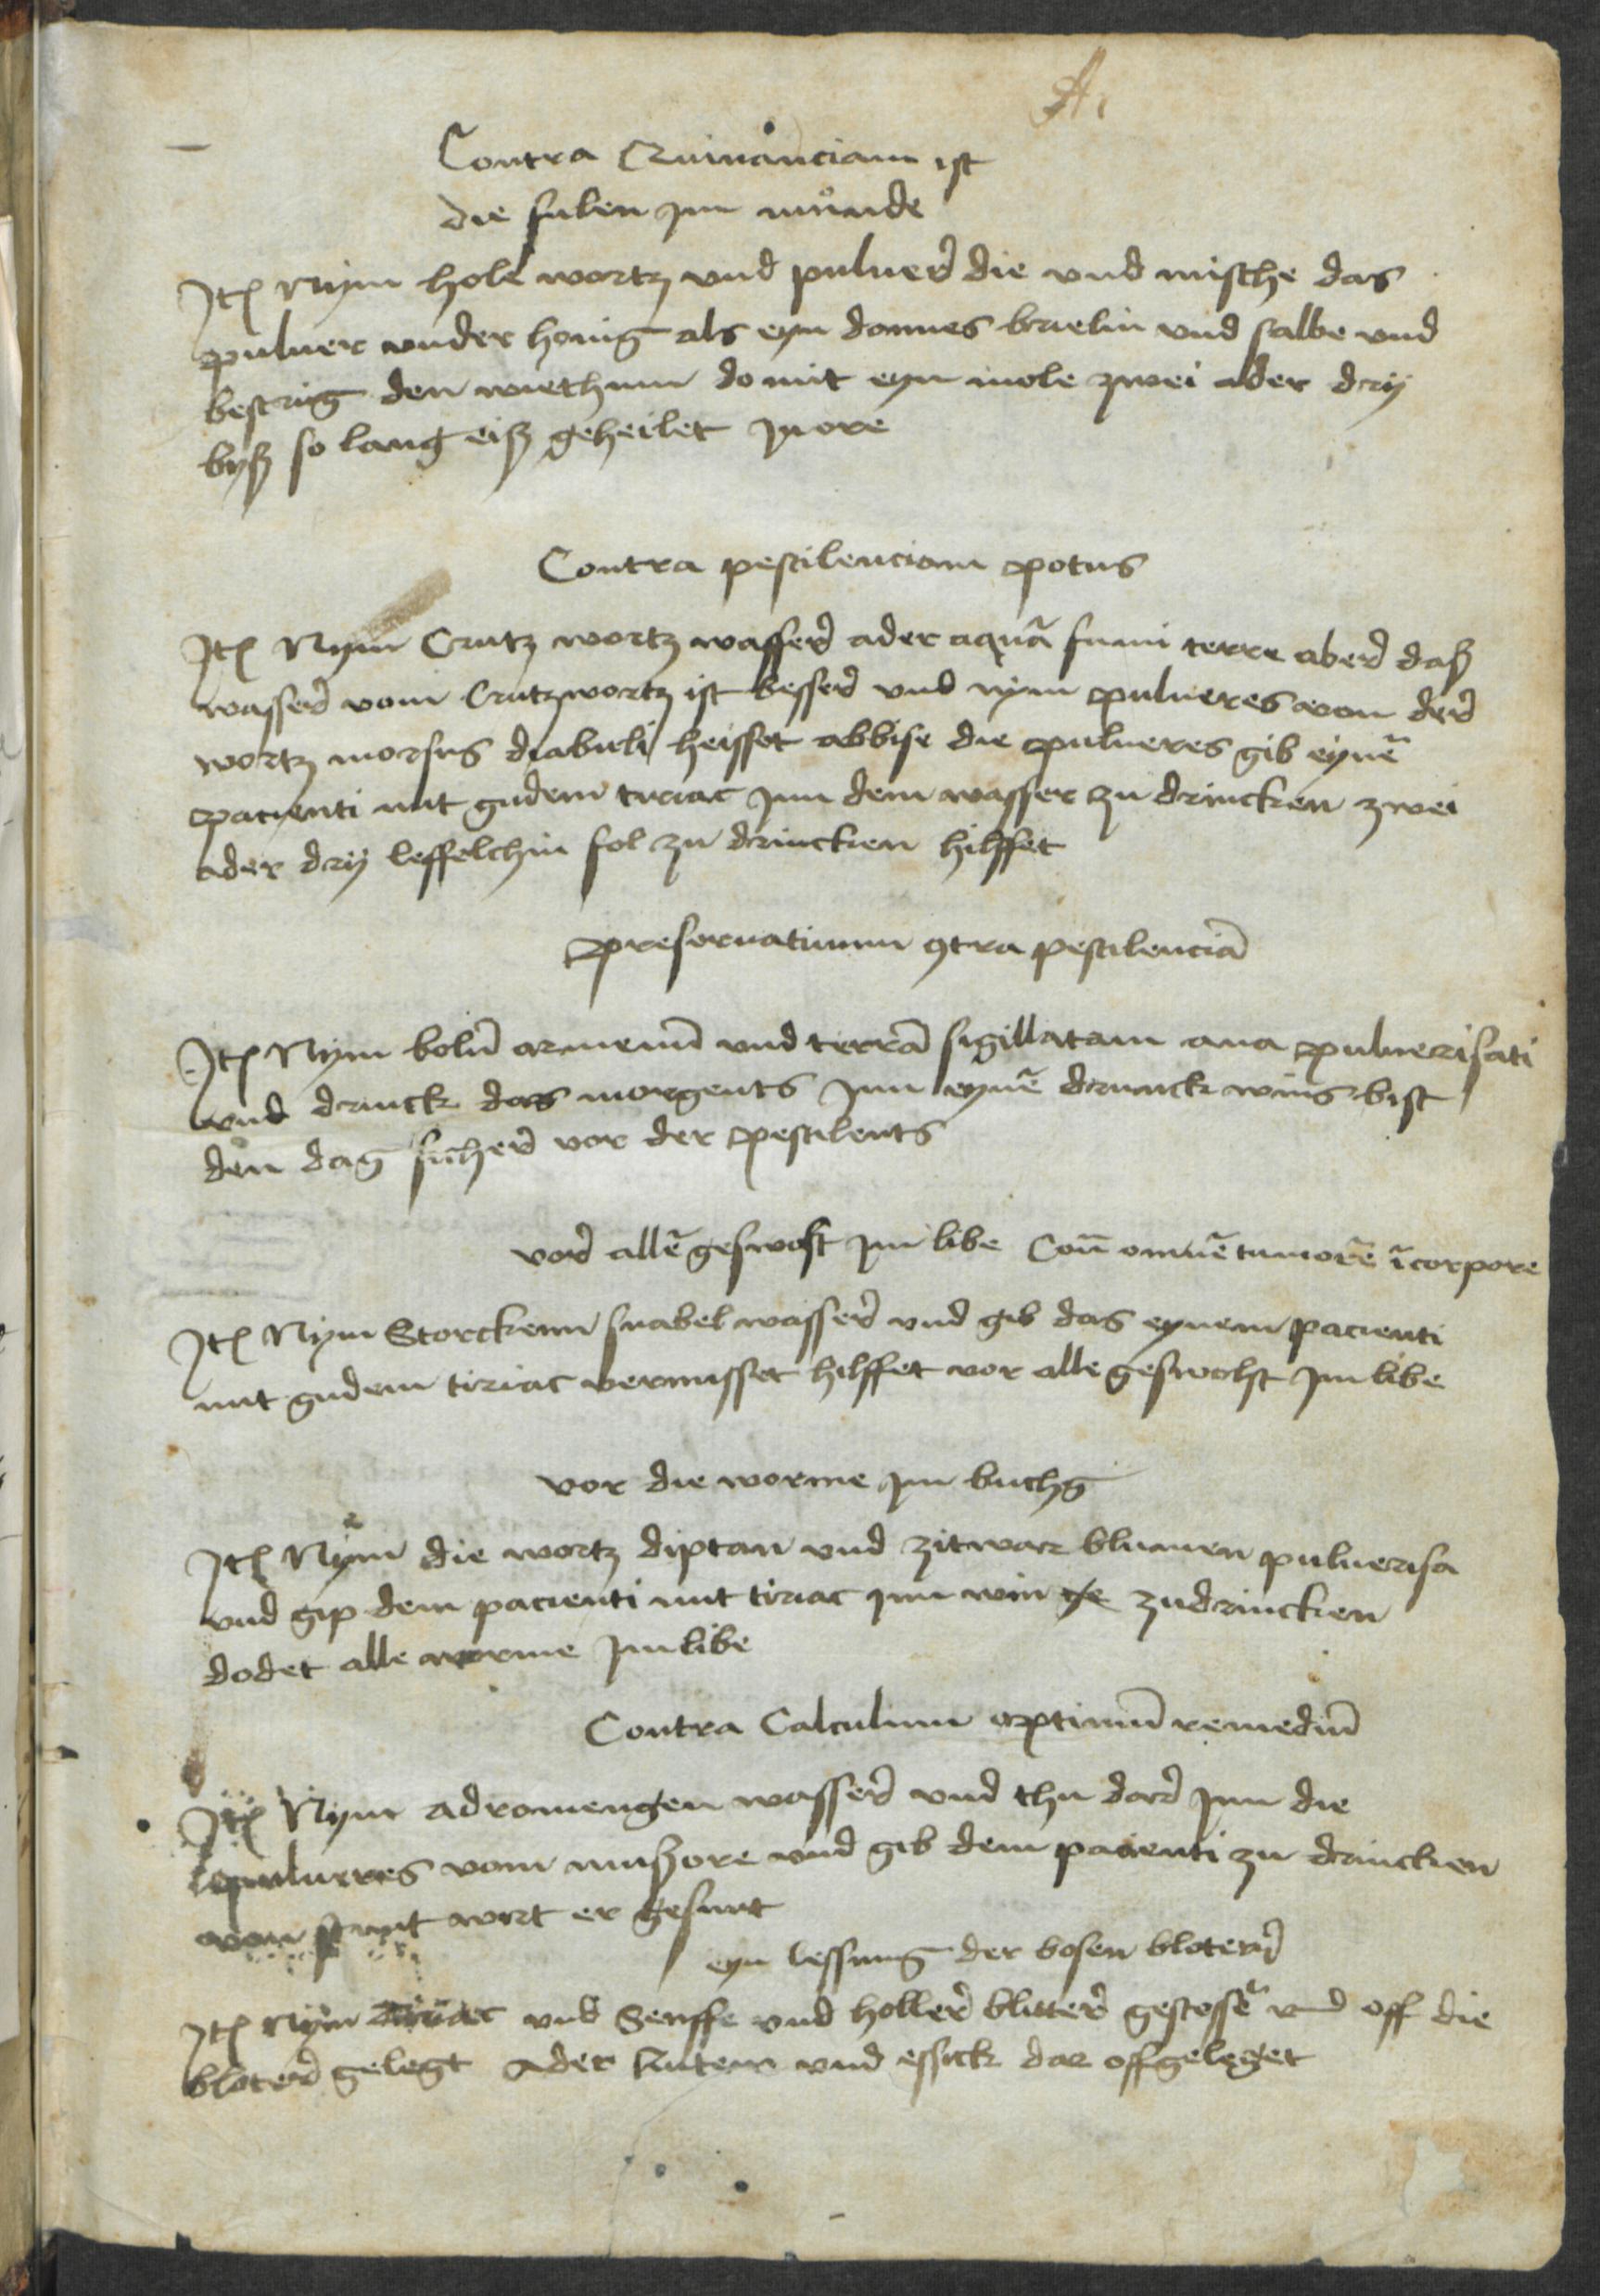 A.
Contra Quinanciam ist
die fulen jm mu̇nde
Jtē Nym hole wortz vnd puluer̄ die vnd mische das
puluer vnder honig als eyn donnes brielin vnd salbe vnd
bestrig den wiethum do mit eyn mole zwei ader drij
byß so lang eiß geheilet jn ore
Contra pestilenciam potus
Jtē Nym Crutz wortz wasser̄ ader aquā fumi terre aber̄ daß
wasser̄ vom Crutzwortz ist besser̄ vnd nym pulueres von der̄
wortz morsus diabuli heisset abbise die pulueres gib eynē
pacienti mit gudem tiriac jnn dem wasser zu drincken zwei
ader drij leffelchin fol zu drincken hilffet
preseruatiuum 9tra pestilenciā
Jtē Nym bolū armenū vnd terrā sigillatam ana puluerisati
vnd drinck das morgents jnn eynē drunck wins bist
den dag sicher̄ vor der pestilents
vor̄ allē geswolst jm libe Con̄ omnē tumorē ī corpore
Jtē Nym Storckenn snabel wasser̄ vnd gib das eynem pacienti
mit gudem tiriac vermisset hilffet vor alle geswolst jm libe
vor die worme jm buchg
Jtē Nym die wortz diptan vnd zitwar blumen puluerisa
vnd gip dem pacienti mit tiriac jnn win zudrincken
dodet alle worme jm libe
Contra Calculum optimū remediū
Jtē Nym adromengen wasser̄ vnd thu dar̄ jnn die
pulueres vom mußore vnd gib dem pacienti zu drincken
von stunt wirt er gesunt
eyn lessung der bosen bloter̄
Jtē Nym tiriac vnd Senffe vnd holler̄ blitter̄ gestossē vnd off die
bloter̄ gelegt Ader Lutem vnd essick dar offgeleget